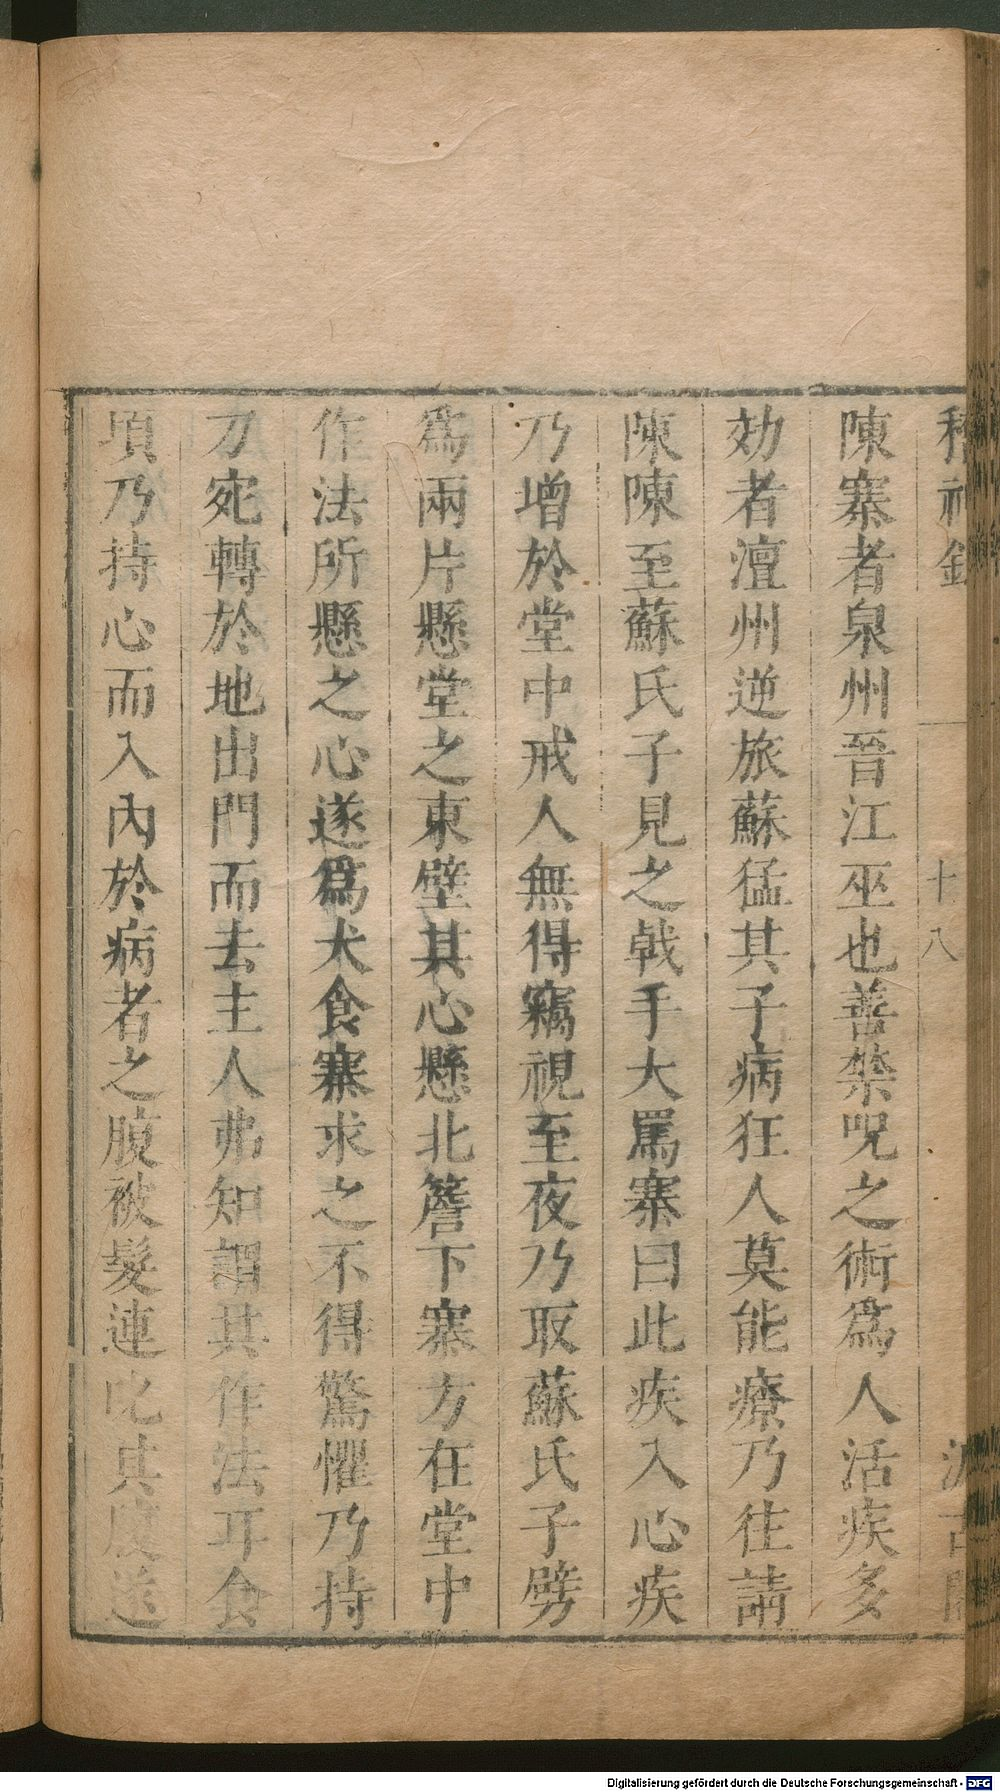 稽神錄 十八 汲古閣
陳寨者泉州晉江巫也善禁呪之術爲人活疾多
効者澶州逆旅蘇猛其子病狂人莫能療乃往請
陳陳至蘇氏子見之戟手大罵寨曰此疾入心疾
乃增於堂中戒人無得竊視至夜乃取蘇氏子劈
爲兩片懸堂之東壁其心懸北簷下寨方在堂中
作法所懸之心遂爲犬食寨求之不得驚懼乃持
刀宛轉於地出門而去主人弗知謂其作法耳食
頃乃持心而入內於病者之腹被髮連叱其腹遂
Digitalisierung gefördert durch die Deutsche Forschungsgemeinschaft - DFG